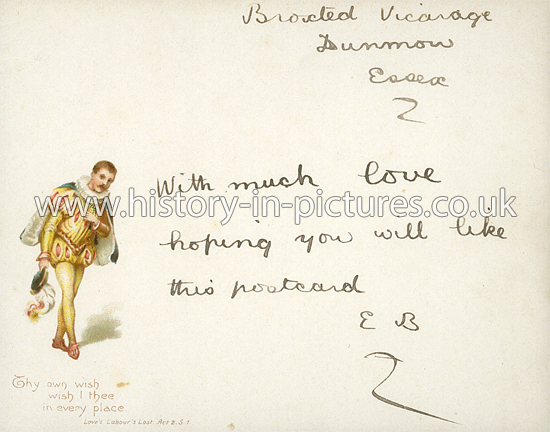 Broxted Vicarage
Dunmow
Essex
With much love
www.history-in-pictures.co.uk
hoping you will like
this postcard
E B
Thy own wish
wish I thee
in every place
Love's Labour's Lost. Act 2. S. 1